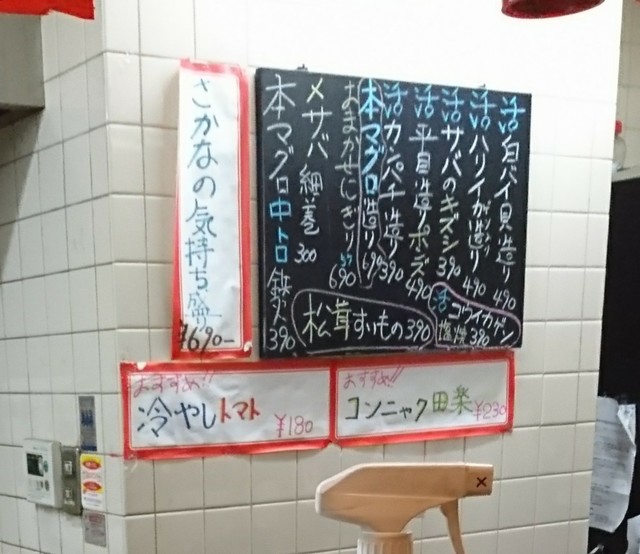 活 白バイ貝造り 490
活 ハリイカ造り 490
活 サバのキズシ 390
活 平目造りポン酢 490
活 カンパチ造り 390
本マグロ造り 690
おまかせにぎり 690
〆サバ 細巻 300
本マグロ中トロ 鉄火 390
松茸すいもの 390
活 コウイカゲソ
塩焼 390
さかなの気持ち盛り
¥690-
おすすめ!!
冷やしトマト ¥180
おすすめ!!
コンニャク田楽 ¥230